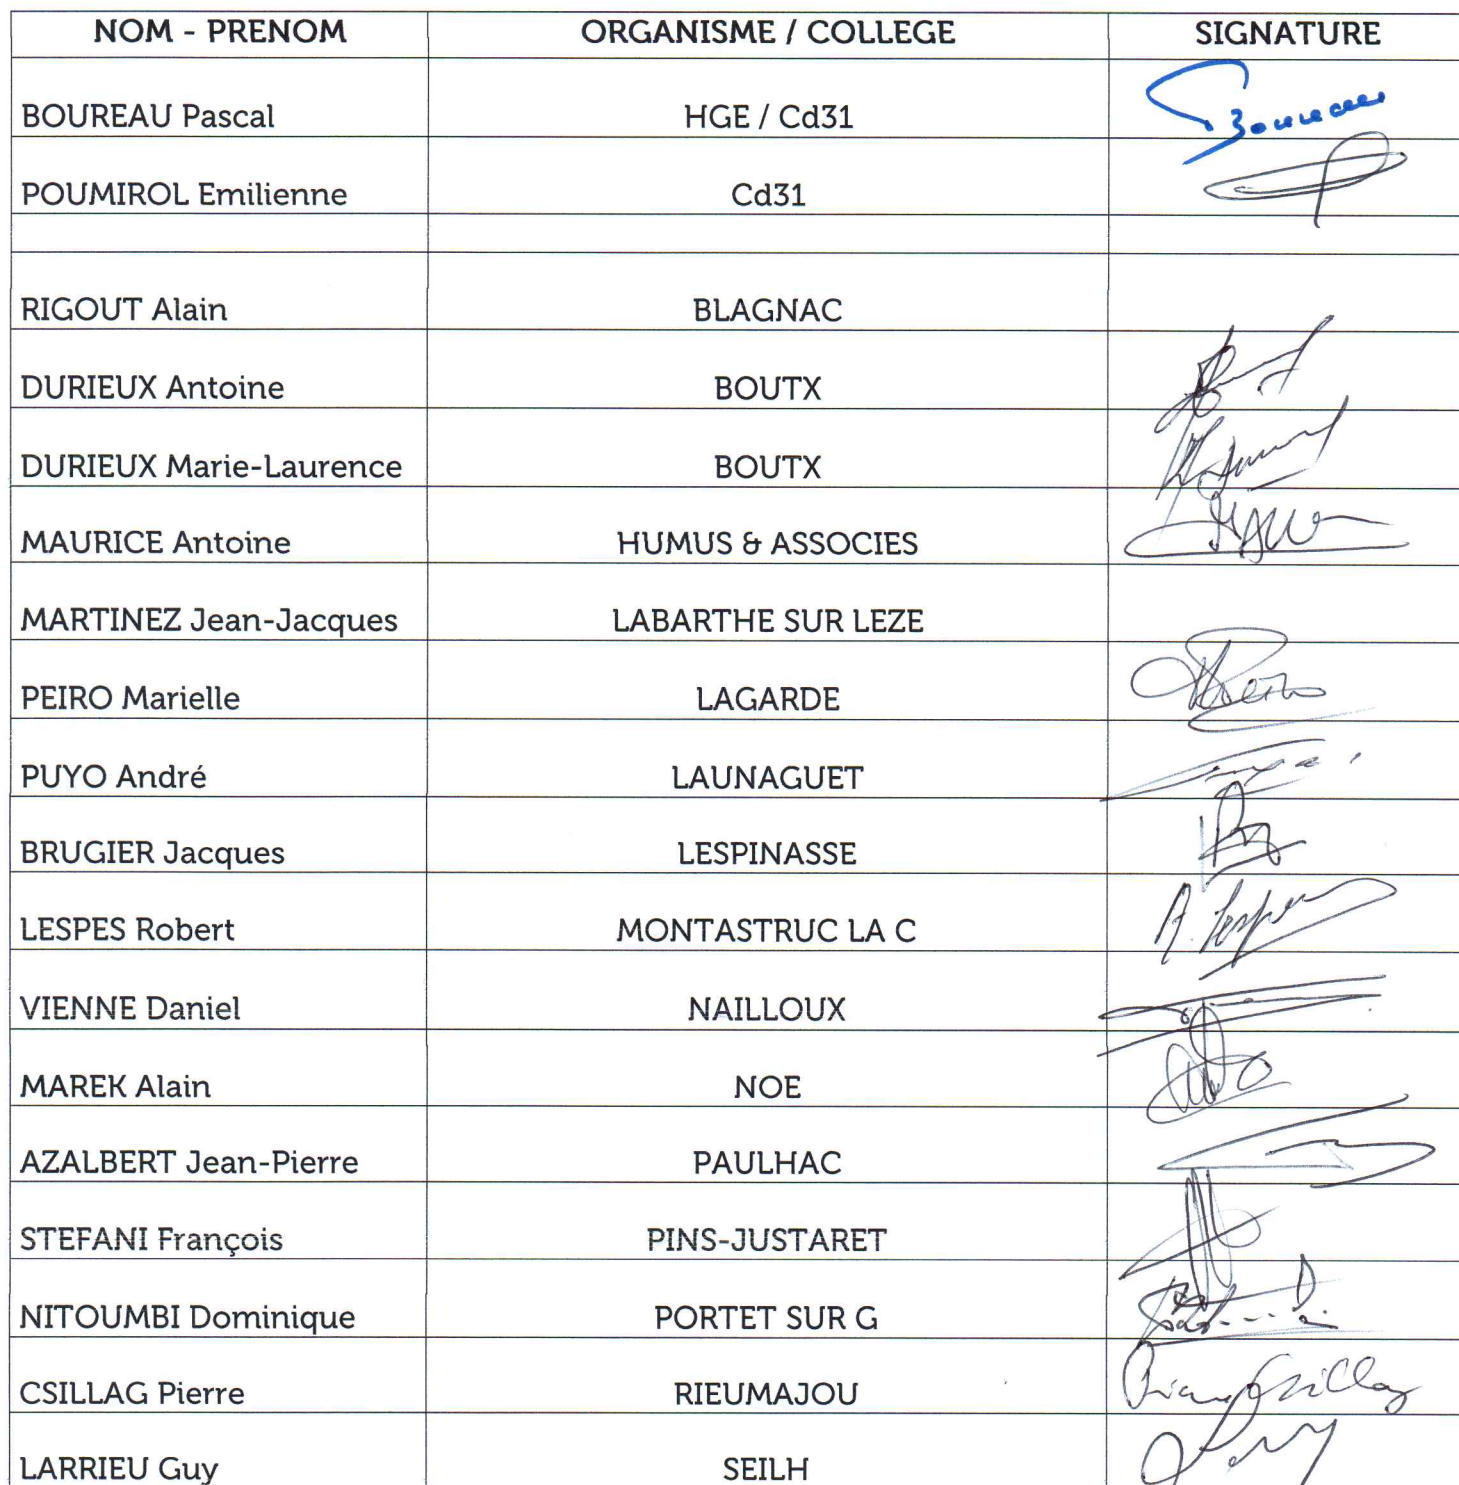 NOM - PRENOM ORGANISME / COLLEGE SIGNATURE
BOUREAU Pascal HGE / Cd31 Boureau
POUMIROL Emilienne Cd31
RIGOUT Alain BLAGNAC
DURIEUX Antoine BOUTX
DURIEUX Marie-Laurence BOUTX
MAURICE Antoine HUMUS & ASSOCIES
MARTINEZ Jean-Jacques LABARTHE SUR LEZE
PEIRO Marielle LAGARDE
PUYO André LAUNAGUET
BRUGIER Jacques LESPINASSE
LESPES Robert MONTASTRUC LA C
VIENNE Daniel NAILLOUX
MAREK Alain NOE
AZALBERT Jean-Pierre PAULHAC
STEFANI François PINS-JUSTARET
NITOUMBI Dominique PORTET SUR G
CSILLAG Pierre RIEUMAJOU Pierre Csillag
LARRIEU Guy SEILH